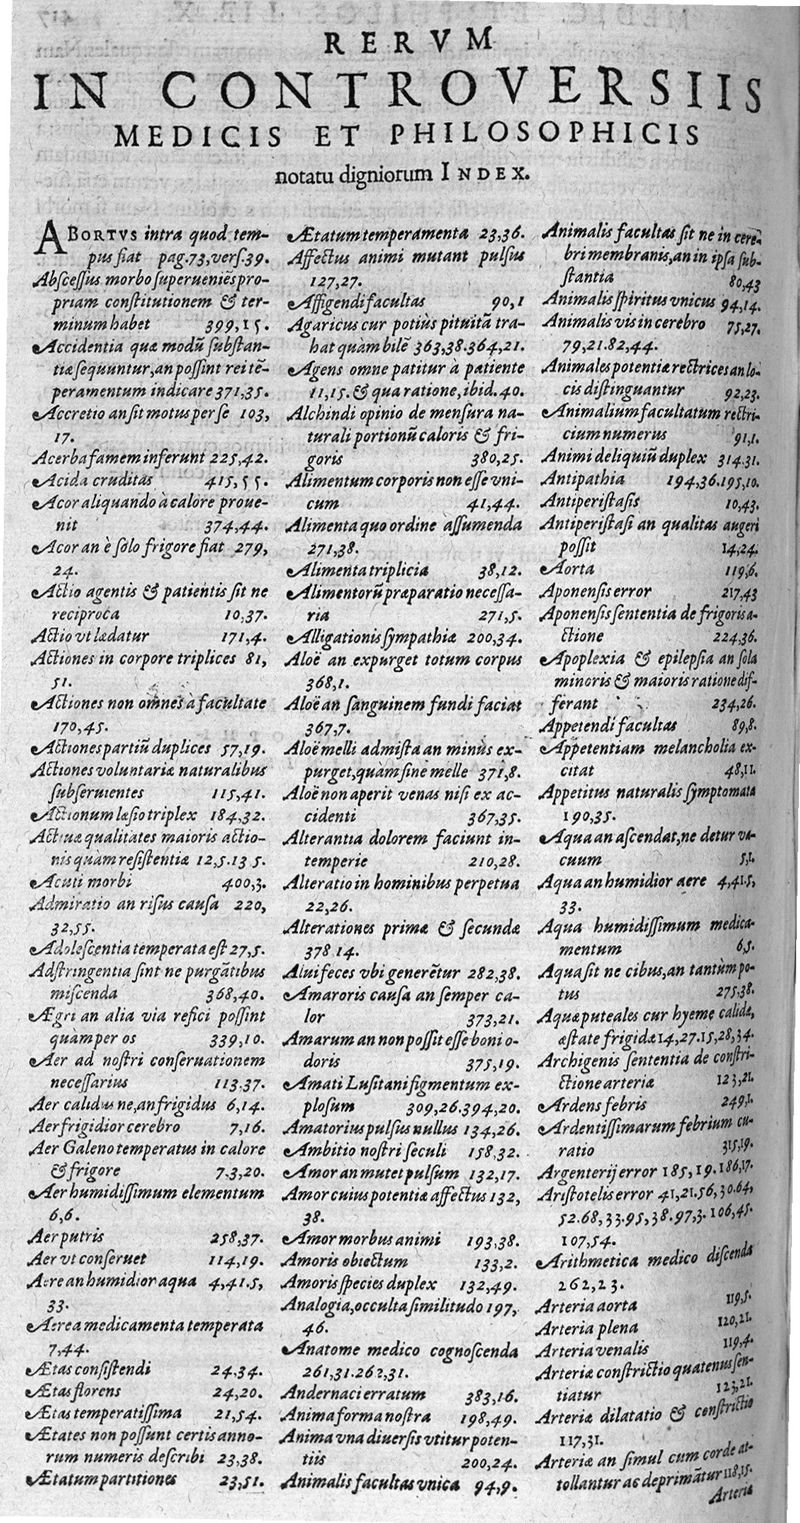 RERVM
IN CONTROVERSIIS
MEDICIS ET PHILOSOPHICIS
notatu digniorum INDEX.
ABORTVS intra quod tem-
pus fiat pag.73,vers.39.
Abscessus morbo superueniẽs pro-
priam constitutionem & ter-
minum habet 399,15.
Accidentia quæ modũ substan-
tiæ sequuntur,an possint rei tẽ-
peramentum indicare 371,35.
Accretio an sit motus per se 103,
17.
Acerba famem inferunt 225,42.
Acida cruditas 415,55.
Acor aliquando à calore proue-
nit 374,44.
Acor an è solo frigore fiat 279,
24.
Actio agentis & patientis sit ne
reciproca 10,37.
Actio vt lædatur 171,4.
Actiones in corpore triplices 81,
51.
Actiones non omnes à facultate
170,45.
Actiones partiũ duplices 57,19.
Actiones voluntariæ naturalibus
subseruientes 115,41.
Actionum læsio triplex 184,32.
Actiuæ qualitates maioris actio-
nis quàm resistentiæ 12,5.13 5.
Acuti morbi 400,3.
Admiratio an risus causa 220,
32,55.
Adolescentia temperata est 27,5.
Adstringentia sint ne purgãtibus
miscenda 368,40.
Ægri an alia via refici possint
quàm per os 339,10.
Aer ad nostri conseruationem
necessarius 113,37.
Aer calidus ne,an frigidus 6,14.
Aer frigidior cerebro 7,16.
Aer Galeno temperatus in calore
& frigore 7.3,20.
Aer humidissimum elementum
6,6.
Aer putris 258,37.
Aer vt conseruet 114,19.
Aere an humidior aqua 4,41.5,
33.
Aerea medicamenta temperata
7,44.
Ætas consistendi 24,34.
Ætas florens 24,20.
Ætas temperatissima 21,54.
Ætates non possunt certis anno-
rum numeris describi 23,38.
Ætatum partitiones 23,51.
Ætatum temperamenta 23,36.
Affectus animi mutant pulsus
127,27.
Affigendi facultas 90,1
Agaricus cur potiùs pituitã tra-
hat quàm bilẽ 363,38.364,21.
Agens omne patitur à patiente
11,15.& qua ratione,ibid.40.
Alchindi opinio de mensura na-
turali portionũ caloris & fri-
goris 380,25.
Alimentum corporis non esse vni-
cum 41,44.
Alimenta quo ordine assumenda
271,38.
Alimenta triplicia 38,12.
Alimentorũ præparatio necessa-
ria 271,5.
Alligationis sympathiæ 200,34.
Aloë an expurget totum corpus
368,1.
Aloë an sanguinem fundi faciat
367,7.
Aloë melli admista an minùs ex-
purget,quàm sine melle 371,8.
Aloë non aperit venas nisi ex ac-
cidenti 367,35.
Alterantia dolorem faciunt in-
temperie 210,28.
Alteratio in hominibus perpetua
22,26.
Alterationes primæ & secundæ
378 14.
Alui feces vbi generẽtur 282,38.
Amaroris causa an semper ca-
lor 373,21.
Amarum an non possit esse boni o-
doris 375,19.
Amati Lusitani figmentum ex-
plosum 309,26.394,20.
Amatorius pulsus nullus 134,26.
Ambitio nostri seculi 158,32.
Amor an mutet pulsum 132,17.
Amor cuius potentiæ affectus 132,
38.
Amor morbus animi 193,38.
Amoris obiectum 133,2.
Amoris species duplex 132,49.
Analogia,occulta similitudo 197,
46.
Anatome medico cognoscenda
261,31.262,31.
Andernaci erratum 383,16.
Anima forma nostra 198,49.
Anima vna diuersis vtitur poten-
tiis 200,24.
Animalis facultas vnica 94,9.
Animalis facultas sit ne in cere-
bri membranis,an in ipsa sub-
stantia 80,43
Animalis spiritus vnicus 94,14.
Animalis vis in cerebro 75,27.
79,21.82,44.
Animales potentiæ rectrices an lo-
cis distinguantur 92,23.
Animalium facultatum rectri-
cium numerus 91,1.
Animi deliquiũ duplex 314.31.
Antipathia 194,36.195,10.
Antiperistasis 10,43.
Antiperistasi an qualitas augeri
possit 14,24.
Aorta 119,6.
Aponensis error 217,43
Aponensis sententia de frigoris a-
ctione 224,36.
Apoplexia & epilepsia an sola
minoris & maioris ratione dif-
ferant 234,26.
Appetendi facultas 89,8.
Appetentiam melancholia ex-
citat 48,11.
Appetitus naturalis symptomata
190,35.
Aqua an ascendat,ne detur va-
cuum 5,1.
Aqua an humidior aere 4,41.5,
33.
Aqua humidissimum medica-
mentum 6,5.
Aqua sit ne cibus,an tantùm po-
tus 275,38.
Aquæ puteales cur hyeme calidæ,
æstate frigidæ 14,27.15,28,34.
Archigenis sententia de constri-
ctione arteriæ 123,21.
Ardens febris 249,1.
Ardentissimarum febrium cu-
ratio 315,19.
Argenterij error 185,19.186,17.
Aristotelis error 41,21.56,30.64,
52.68,33.95,38.97,3.106,45.
107,54.
Arithmetica medico discenda
262,23.
Arteria aorta 119,5.
Arteria plena 120,21.
Arteria venalis 119,4.
Arteriæ constrictio quatenus sen-
tiatur 123,21.
Arteriæ dilatatio & constrictio
117,31.
Arteriæ an simul cum corde at-
tollantur ac deprimãtur 118,15.
Arteriæ